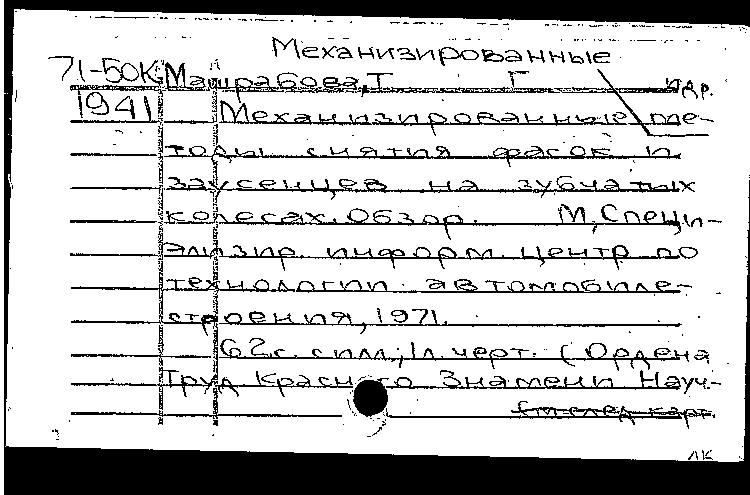 Механизированные
71-50К Машрабова, Т Г и др.
1941 Механизированные ме-
тоды снятия фасок и
заусенцев на зубчатых
колесах. Обзор. М, Специ-
ализир. информ. центр по
технологии автомобиле-
строения, 1971.
62с. с илл.; 1л. черт. (Ордена
Труд Красного Знамени Науч-
См след карт.
ЛК